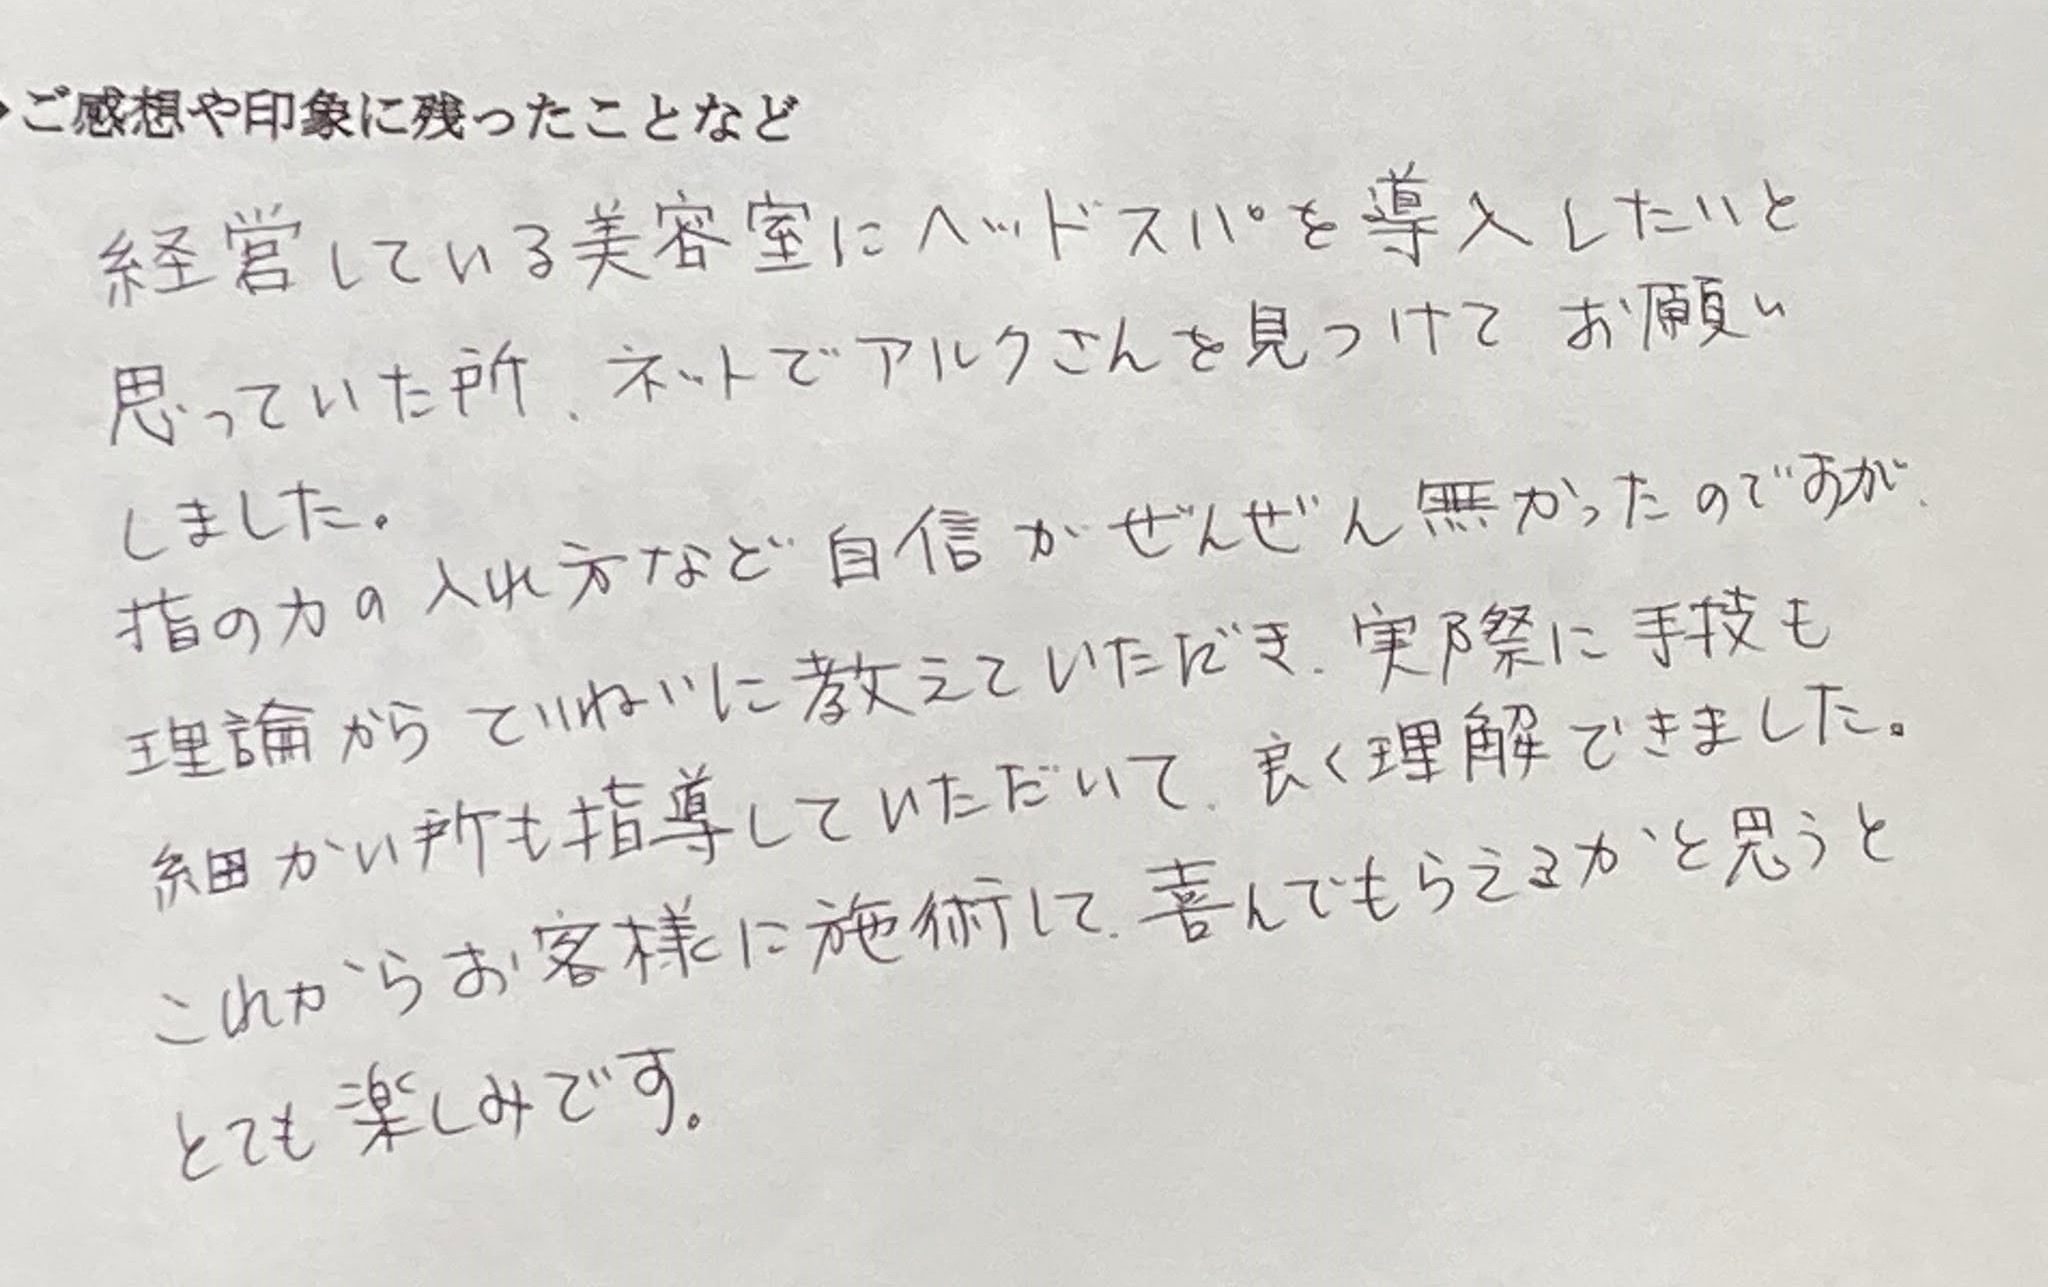 ご感想や印象に残ったことなど
経営している美容室にヘッドスパを導入したいと
思っていた所、ネットでアルクさんを見つけてお願い
しました。
指の力の入れ方など自信がぜんぜん無かったのですが、
理論からていねいに教えていただき、実際に手技も
細かい所も指導していただいて、良く理解できました。
これからお客様に施術して、喜んでもらえるかと思うと
とても楽しみです。